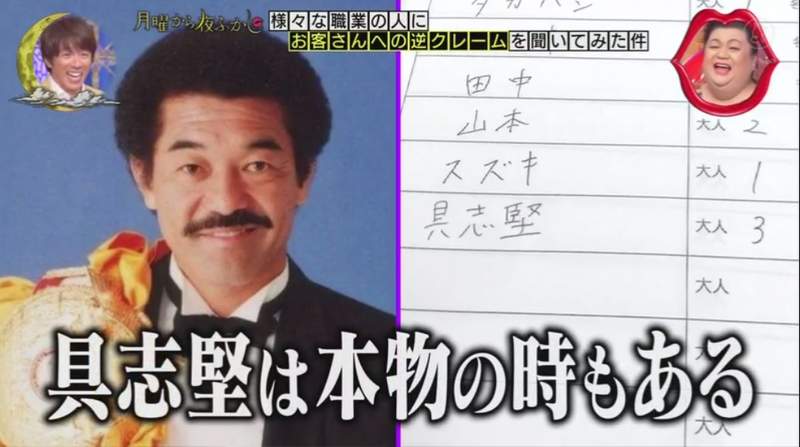 月曜から夜ふかし
様々な職業の人に
お客さんへの逆クレームを聞いてみた件
田中
山本 大人 2
スズキ 大人 1
具志堅 大人 3
大人
大人
具志堅は本物の時もある